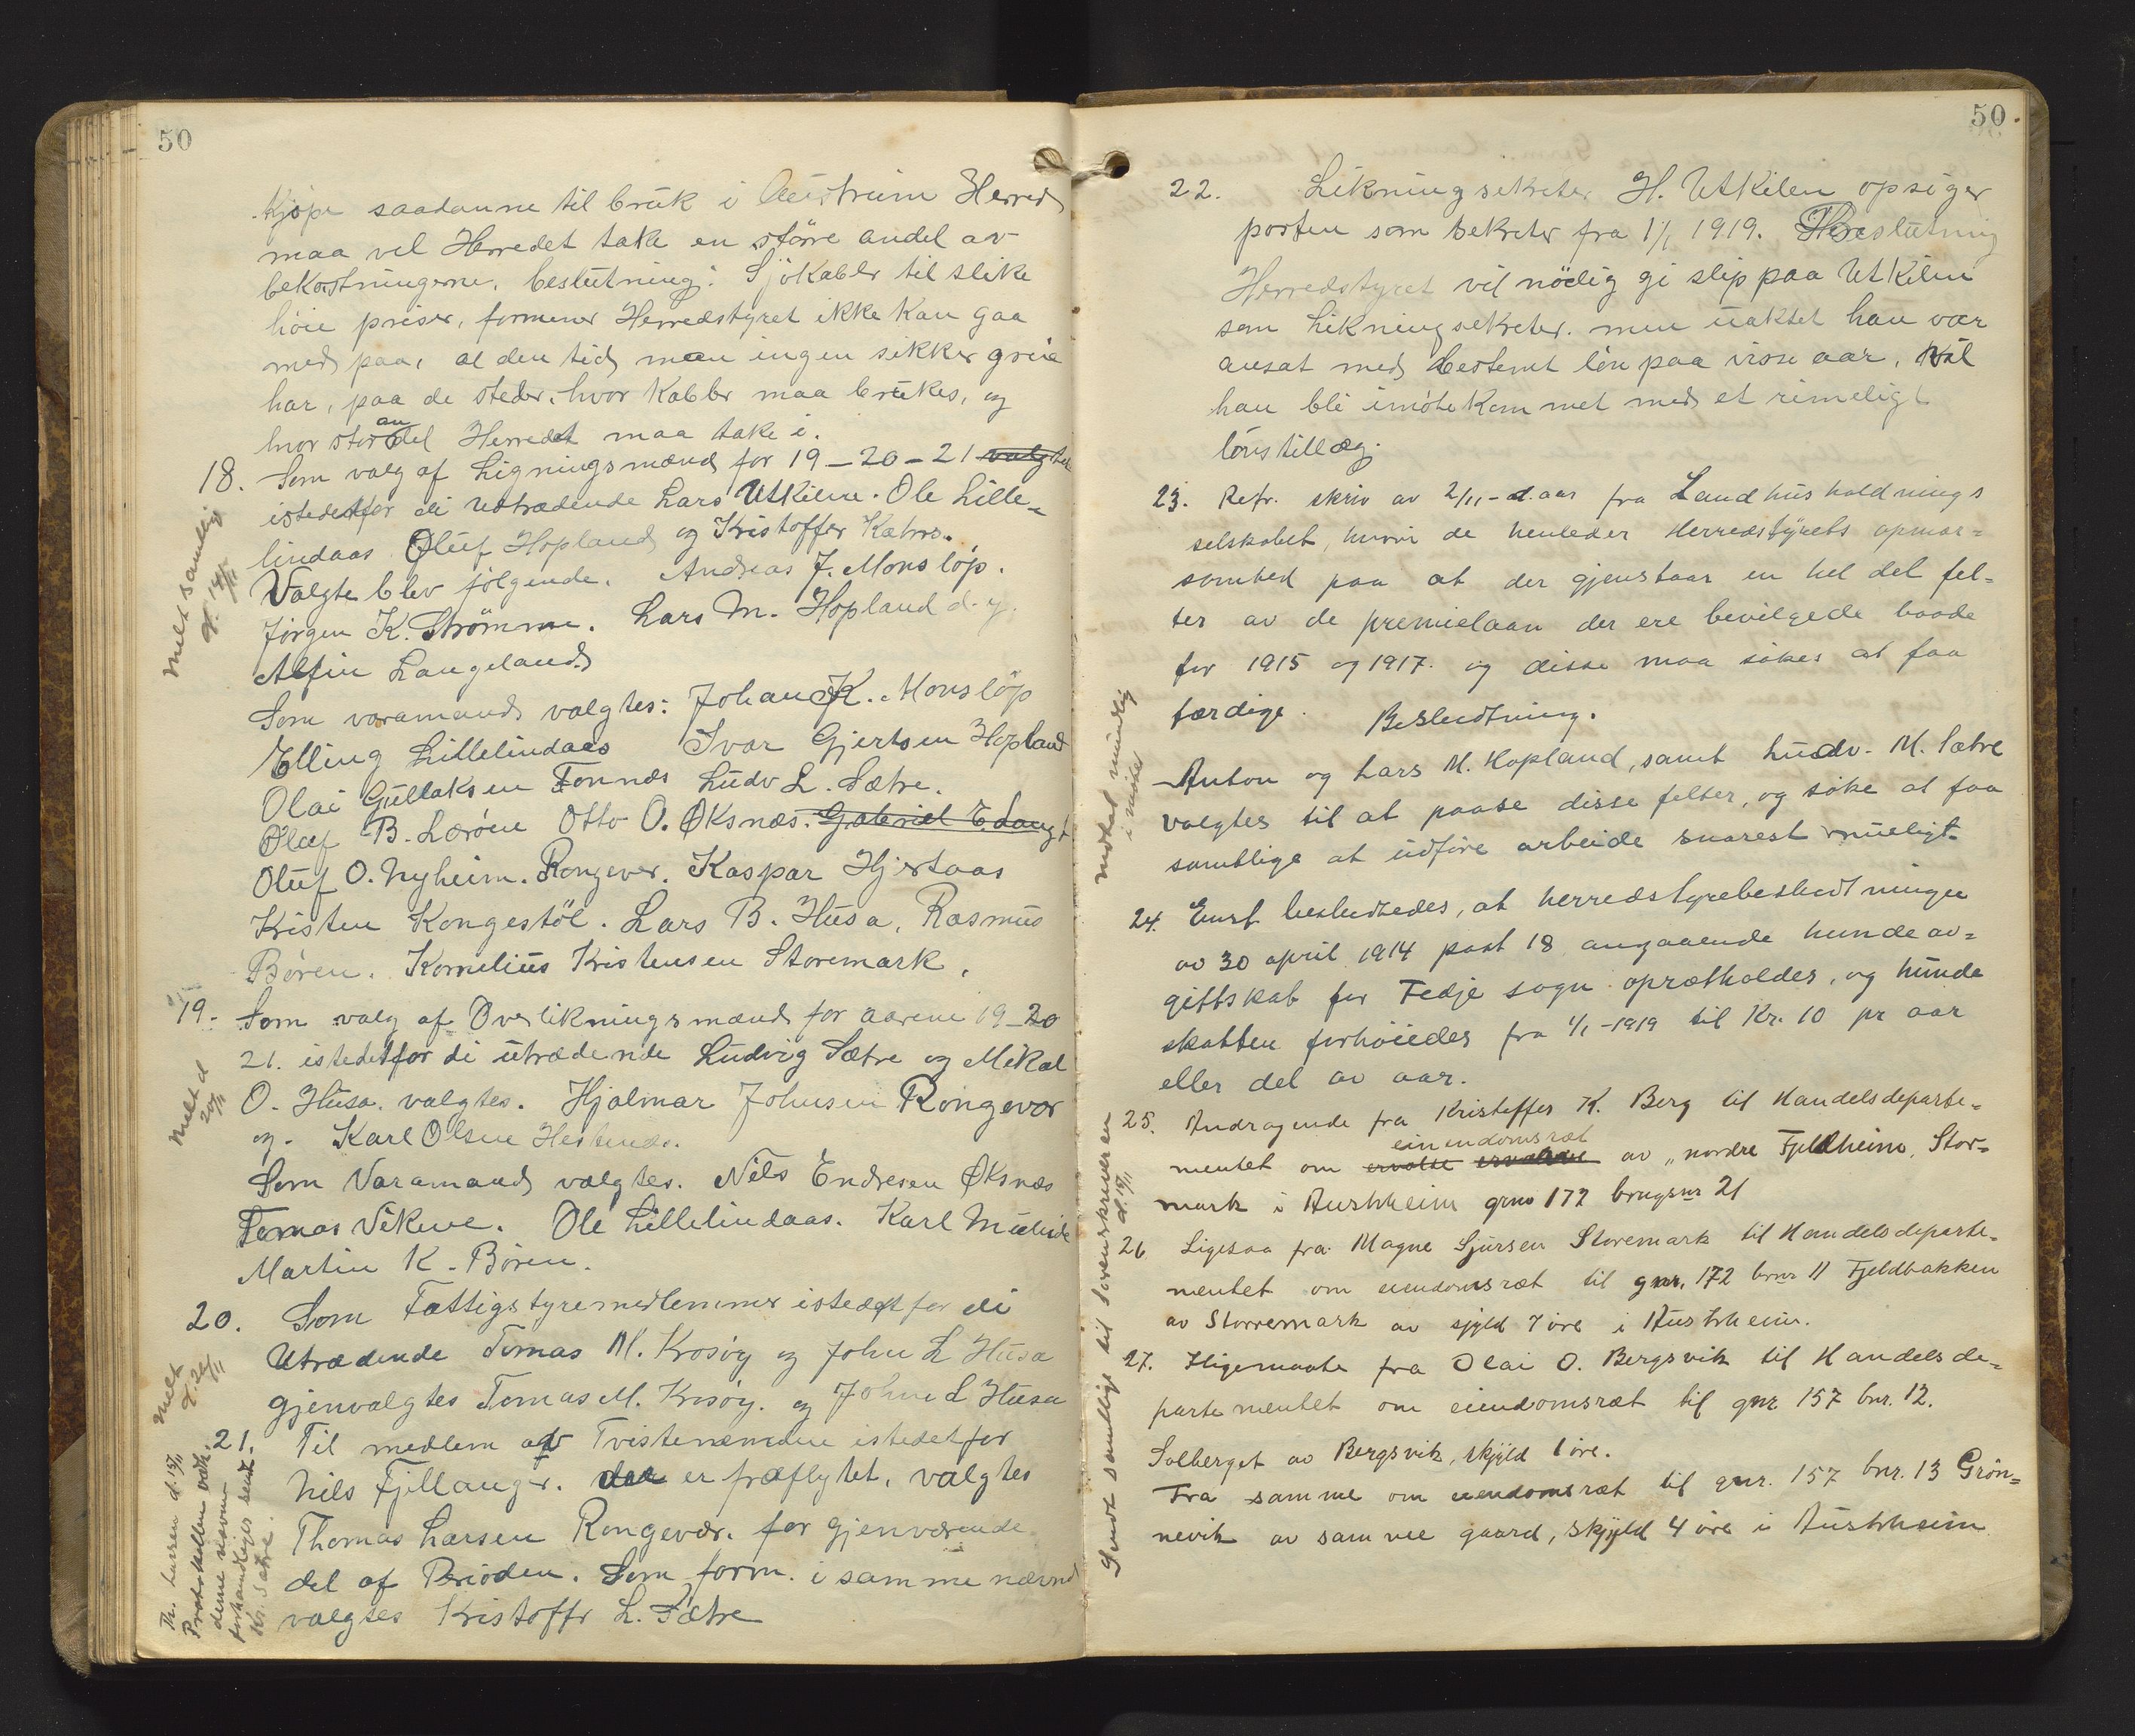 50
Kjöpe saadanne til brük i Aüstrüim Herred
maa vel Herredet take en större andel av
bekostningerne, beslütning: Sjökabler til slike
höie priser, formener Herredstyret ikke kan gaa
med paa, al den tid man ingen sikker greie
har, paa de steder, hvor kabler maa brükes, og
hvor stor andel Herredet maa take i.
18. Som valg af Ligningsmænd for 19-20-21 valgtes
istedetfor di Utrædende Lars Utkilen. Ole Lille-
lindaas Olüf Hopland og Kristoffer
Valgte blev følgende. Andreas J. Monsløp.
Jörgen K. Strömme. Lars M. Hopland d.y.
Alfin Langeland
Som varamænd valgtes: Johan K. Monsløp
Elling Lillelindaas Ivar Gjertsen Hopland
Olai Güllaksen Fonnes Lüdv L. Sætre.
Oluf B. Lerøen Otto O. Øksnæs. Gabriel E. Langt
Olüf O. Nyheim. Rongever. Kaspar Hjertaas
Kristen Kongestöl. Lars B. Hüsa, Rasmüs
Bören. Kornelius Kristensen Storemark.
Melt samtlig
d. 14/11
19. Som valg af Overlikningsmænd for aarene 19-20
21. istedetfor di ütrædende Lüdvig Sætre og Mikal
O. Hüsa. valgtes. Hjalmar Johnsen Rongevær
og. Karl Olsen
Som Varamænd valgtes. Nils Endresen Øksnæs
Tomas Vikene. Ole Lillelindaas. Karl
Martin K. Bören.
Melt d
20/11
20. Som Fattigstyremedlemmer istedetfor di
Utrædende Tomas M. Krosöy og John L Hüsa
gjenvalgtes Tomas M. Krosöy. og John L Hüsa
Melt
d. 20/11
21. Til medlem af Tvistenemden istedetfor
Nils Fjellanger. der er fraflytet, valgtes
Thomas Larsen Rongevær. for gjenværende
del af Perioden. Som form. i samme nævnd
valgtes Kristoffr L. Sætre
Th. Larsen d. 15/11
Protokollen vedk.
denne nævns
forhandliger sendt
Kr. Sætre.
50.
22. Likningsekretær H. Utkilen opsiger
posten som sekretær fra 1/1 1919. Beslütning
Herredstyret vil nödig gi slip paa Utkilen
som Likningsekretær. men üaktet han var
ansat med bestemt lön paa visse aar, vil
han bli imötekommet med et rimeligt
lönstillæg.
23. Refr. skriv av 2/11 - d. aar fra Landhüsholdnings
selskabet, hvori de henleder Herredstÿrets opmær=
somhed paa at der gjenstaar en hel del fel=
ter av de premielaan der ere bevilgede baade
for 1915 og 1917. og disse maa søkes at faa
færdige. Besludtning.
Anton og Lars M. Hopland, samt Lüdv. M. Sætre
valgtes til at paase disse felter, og söke at faa
samtlige at üdföre arbeide snarest müeligt.
Melt mündlig
i mötet
24. Enst besludtedes, at herredstyrebesludtningen
av 30 april 1914 post 18 angaaende hundeav=
giftskat for Fedje sogn opretholdes, og hünde
skatten forhöiedes fra 1/1-1919 til Kr. 10 pr aar
eller del av aar.
25. Andragende fra Kristoffer K. Berg til Handelsdeparte=
mentet om ervolse ervælvse eiuendomsræt av „nordre Fjeldheim, Stor=
mark i Austrheim grno 172 brugsnr 21
26 Ligesaa fra Magne Sjürsen Storemark til Handelsdeparte=
mentet om eiendomsræt til gnr. 172 brnr 11 Fjeldbakken
av Storremark av skjyld 7 öre i Aüstrheim.
27. Iligemaate fra Olai O. Bergsvik til Handelsde=
partementet om eiendomsræt til gnr 157 bnr. 12.
Solberget av Bergsvik, skjyld 1 öre.
Fra samme om eiendomsræt til gnr. 157 bnr. 13 Grön=
nevik av samme gaard, skjyld 4 öre i Aüstrheim
Sendt samtlige til Sorenskriveren
d. 15/11